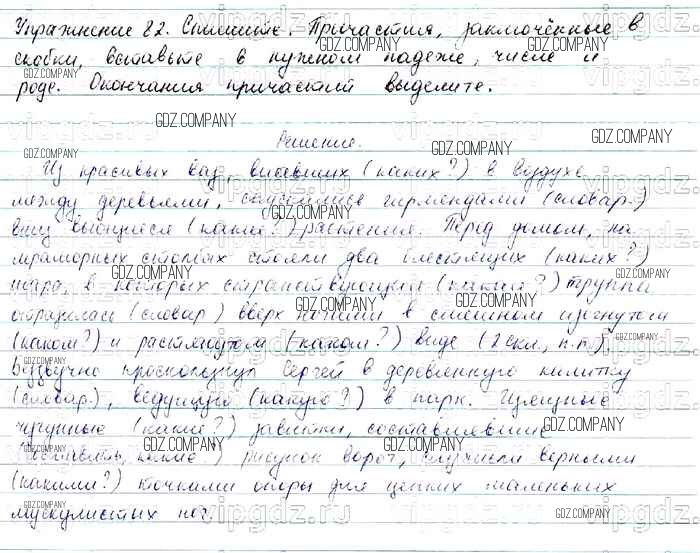 Упражнение 82. Спишите. Причастия, заключённые в
скобки, вставьте в нужном падеже, числе и
роде. Окончания причастий выделите.
Решение.
Из красивых ваз, висевших (каких?) в воздухе
между деревьями, гирляндами (словар.)
вниз вьющиеся (какие?) растения. Перед домом, на
мраморных столбах стояли два блестящих (каких?)
шара, в которых странствующая (какая?) труппа
отразилась (словар.) вверх ногами в смешном изогнутом
(каком?) и растянутом (каком?) виде (2 скл., п.п.).
Беззвучно проскользнул Сергей в деревянную калитку
(словар.), ведущую (какую?) в парк.
чугунные (какие?) завитки, составлявшие
(составлять, какие?) рисунок ворот, служили верными
(какими?) точками опоры для цепких маленьких
мускулистых ног.
GDZ.COMPANY
vipgdz.ru